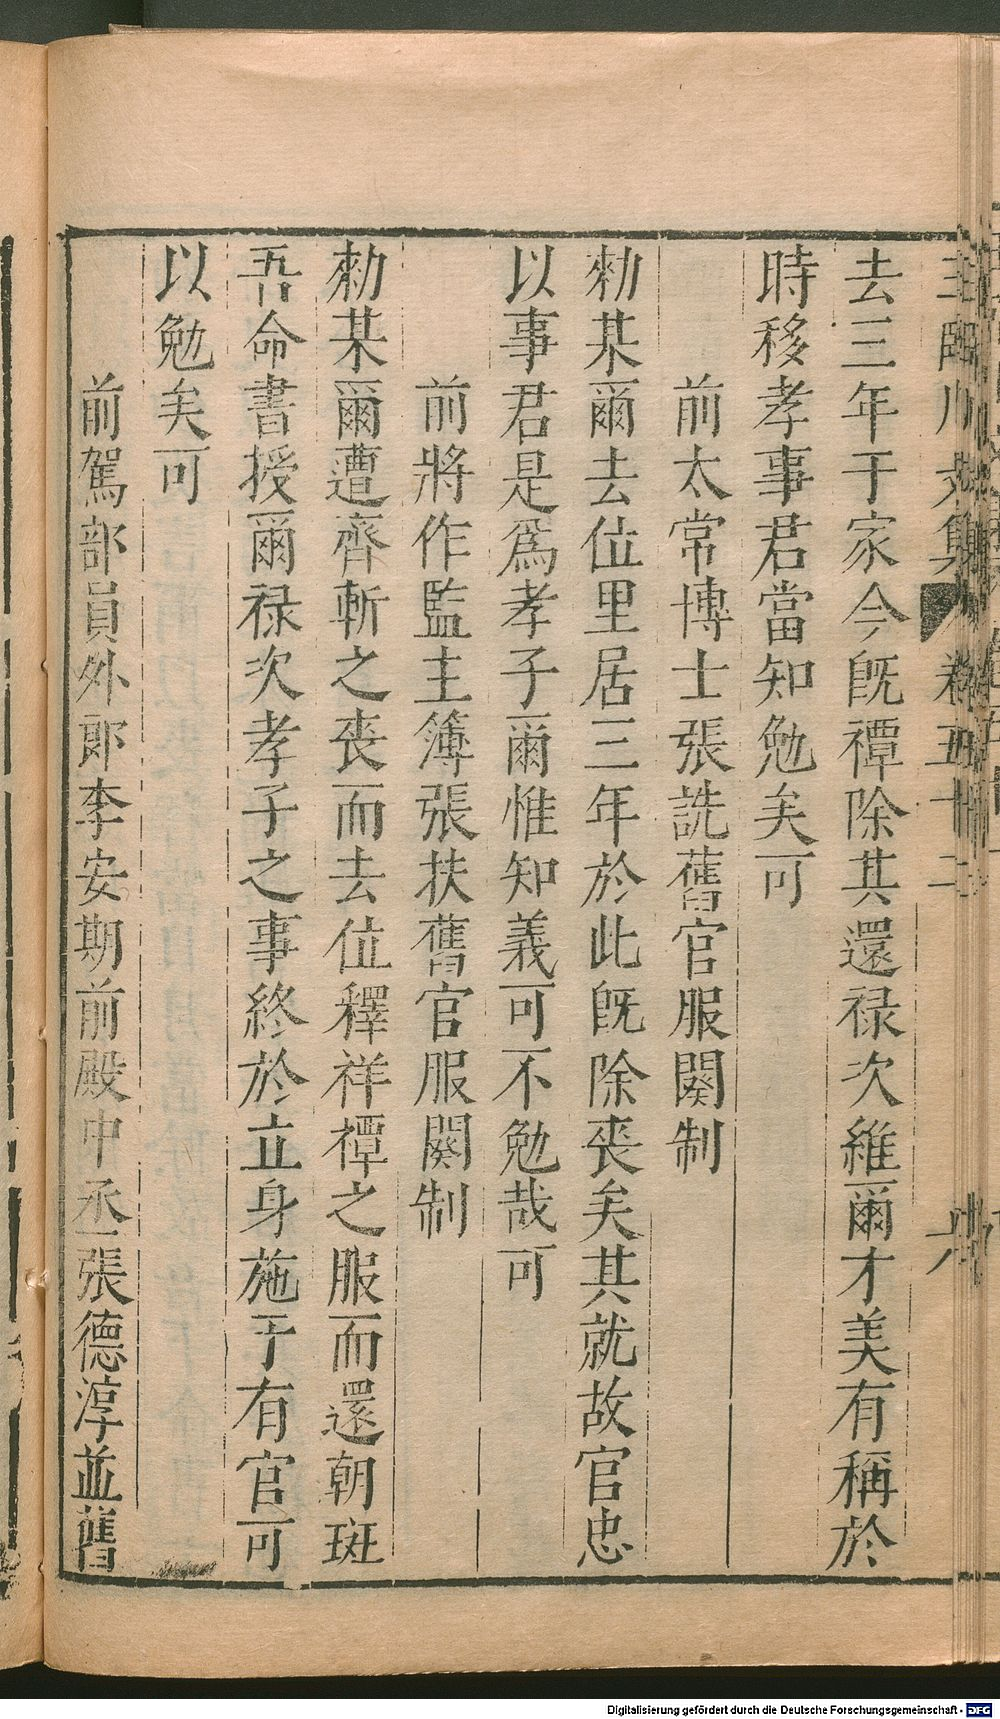 王臨川文集　卷五十二　六
去三年于家今旣禫除其還禄次維爾才美有稱於
時移孝事君當知勉矣可
前太常博士張詵舊官服闋制
勑某爾去位里居三年於此旣除喪矣其就故官忠
以事君是爲孝子爾惟知義可不勉哉可
前將作監主簿張扶舊官服闋制
勑某爾遭齊斬之喪而去位釋祥禫之服而還朝斑
吾命書授爾禄次孝子之事終於立身施于有官可
以勉矣可
前駕部員外郎李安期前殿中丞張德淳並舊
Digitalisierung gefördert durch die Deutsche Forschungsgemeinschaft - DFG